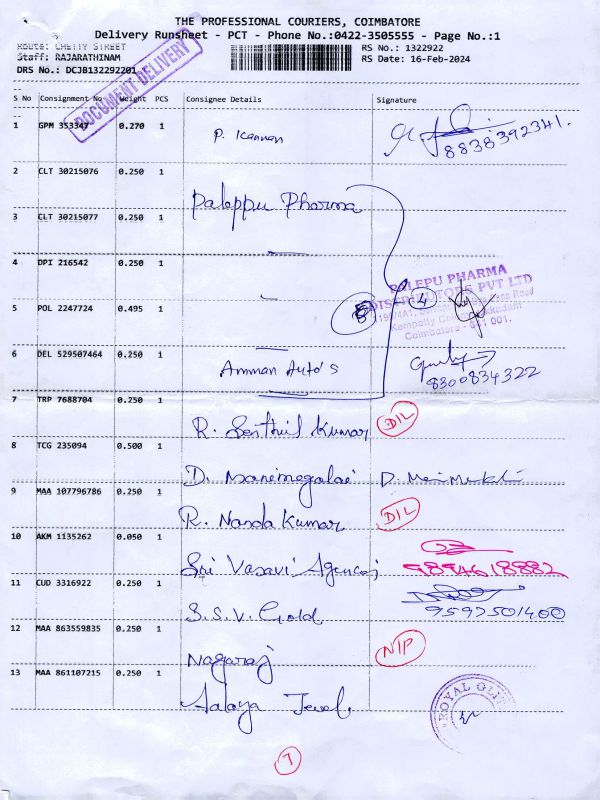 THE PROFESSIONAL COURIERS, COIMBATORE
Delivery Runsheet - PCT - Phone No.:0422-3505555 - Page No.:1
Route: CHETTY STREET
Staff: RAJARATHINAM
DRS No.: DCJB132292201
RS No.: 1322922
RS Date: 16-Feb-2024
DOCUMENT DELIVERY
S No Consignment No Weight PCS Consignee Details Signature
1 GPM 353347 0.270 1 P. Kannan
8838392341.
2 CLT 30215076 0.250 1 Paleppu Pharma
3 CLT 30215077 0.250 1
4 DPI 216542 0.250 1
PALEPU PHARMA
DISTRIBUTORS PVT LTD
Coimbatore - 641 001.
4
5 POL 2247724 0.495 1
6 DEL 529507464 0.250 1 Amman Auto's
8300834322
7 TRP 7688704 0.250 1 R. Senthil Kumar D/L
8 TCG 235094 0.500 1 D. Manimegalai
9 MAA 107796786 0.250 1 R. Nanda Kumar D/L
10 AKM 1135262 0.050 1 Sri Vasavi Agency 9894618882
11 CUD 3316922 0.250 1 S.S.V. Gold 9597501400
12 MAA 863559835 0.250 1 Nagaraj N/P
13 MAA 861107215 0.250 1
ROYAL
7